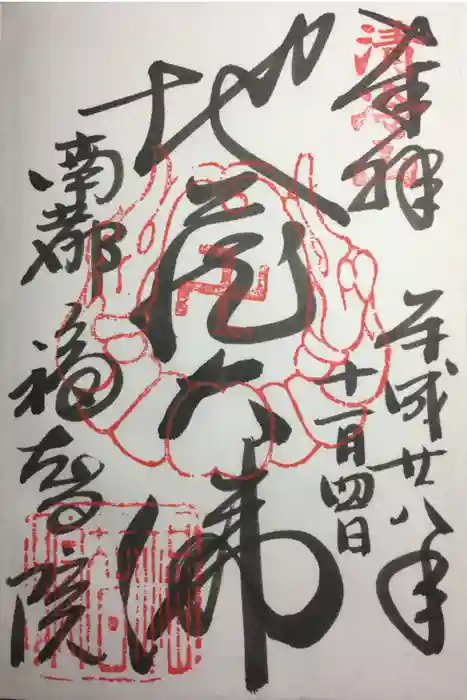 奉拝
清冷山
平成廿八年
十一月四日
地蔵大佛
卍
南都
福智院